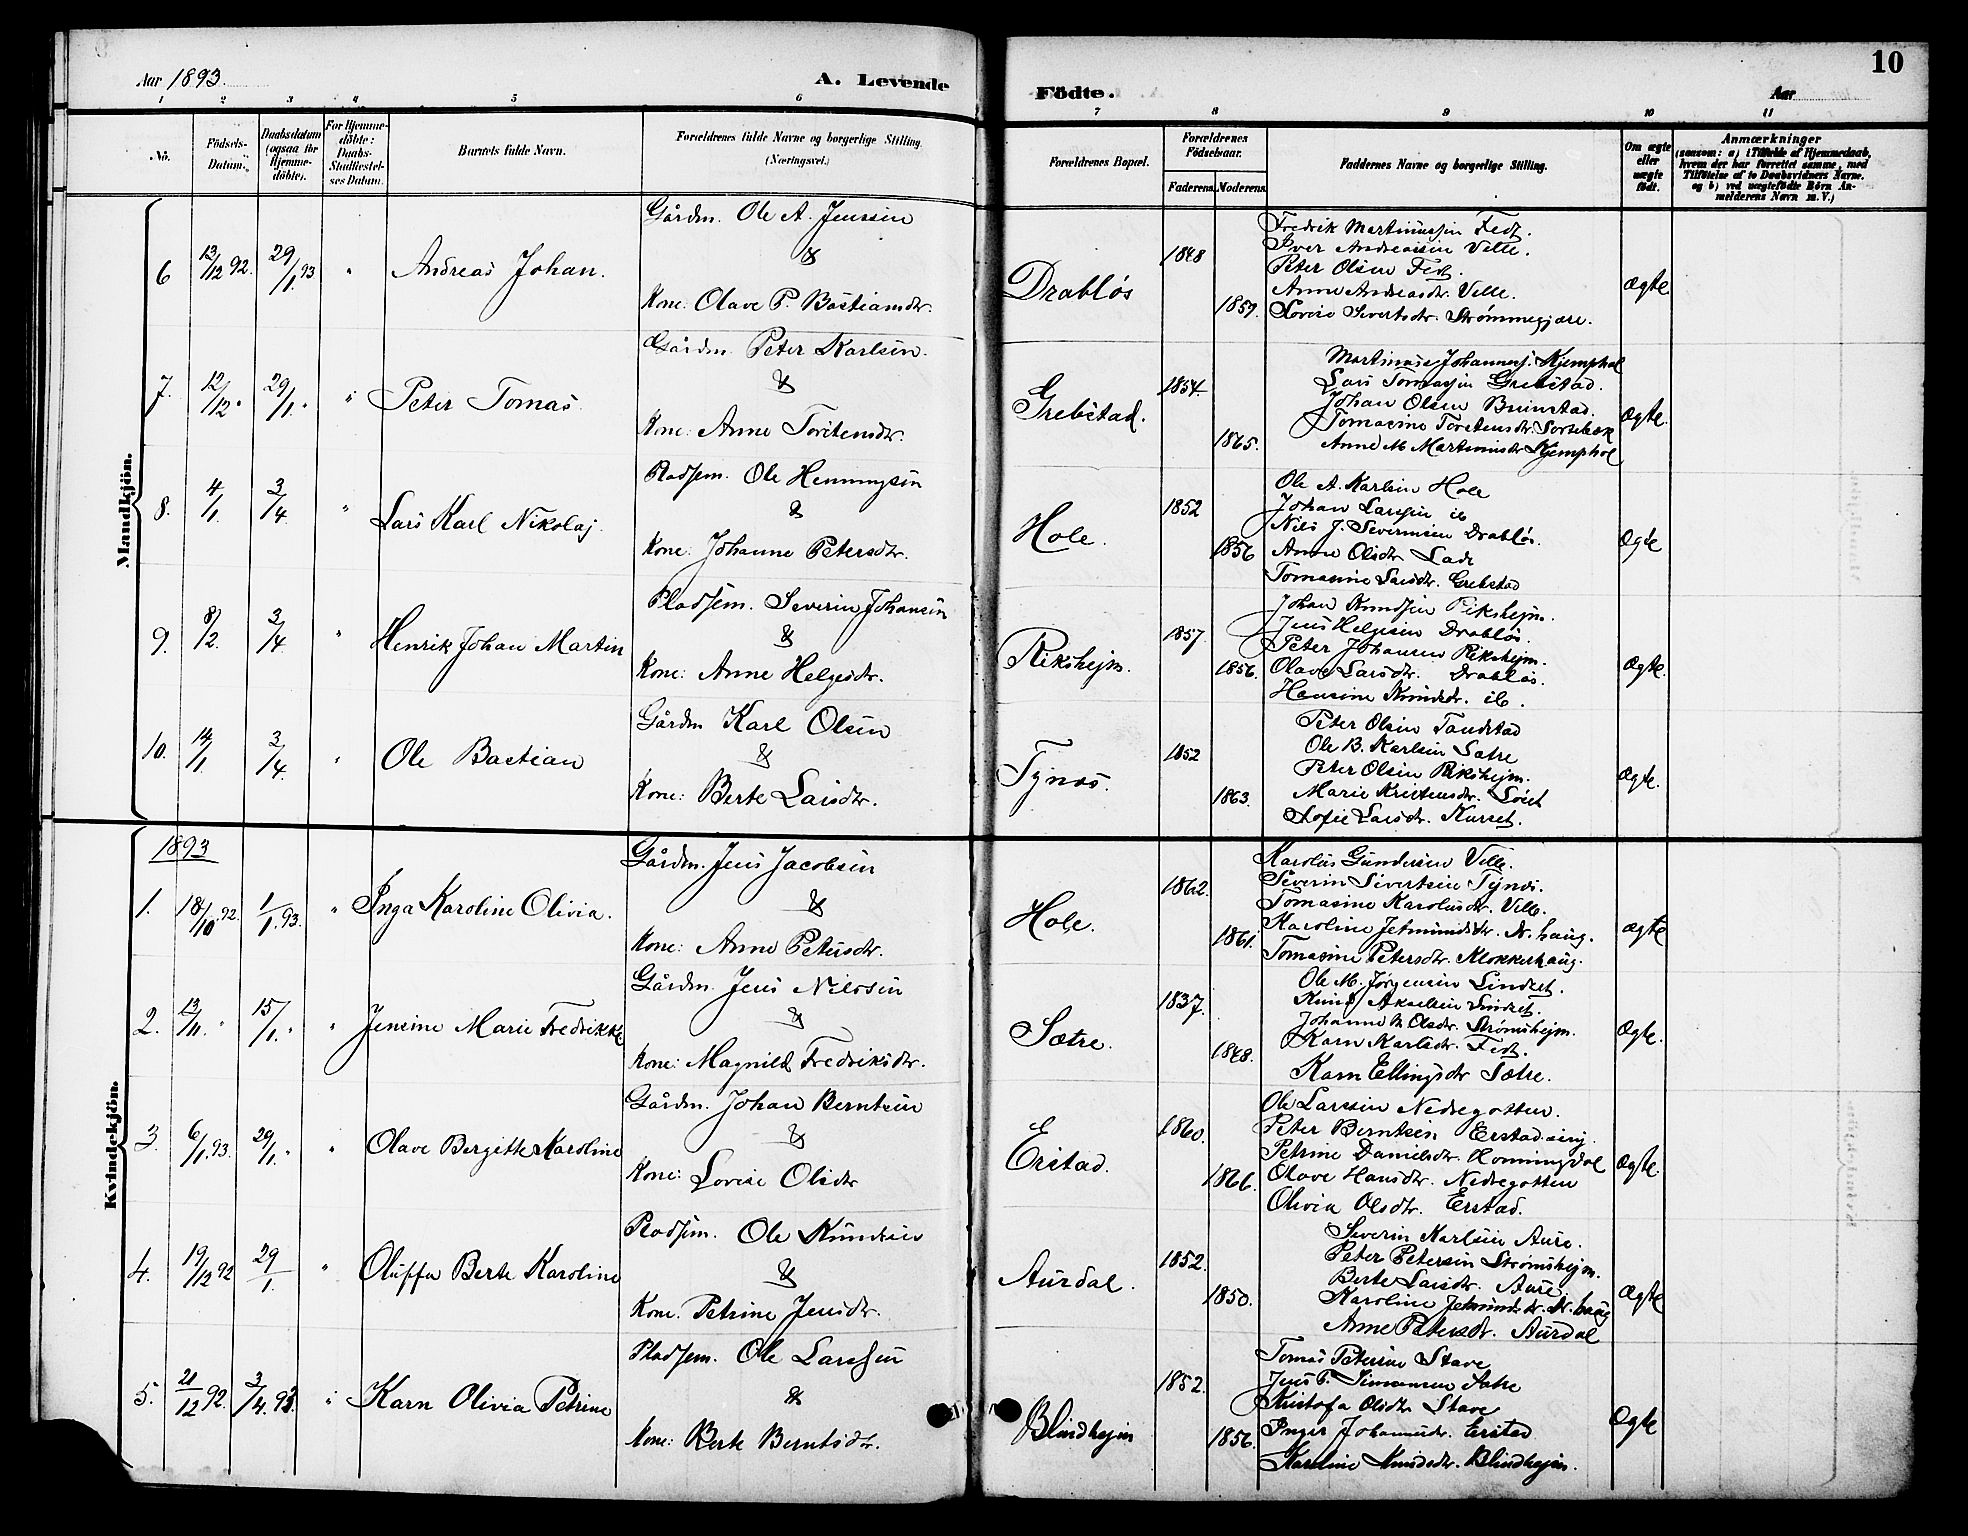 Aar 1893.
A. Levende
Födte.
Aar
10
1 2 3 4 5 6 7 8 9 10 11
No.
Födsels-Datum.
Daabsdatum (ogsaa for Hjemme-döbte).
For Hjemme-döbte: Daabs-Stadfæstel-ses Datum.
Barnets fulde Navn.
Forældrenes fulde Navne og borgerlige Stilling. (Næringsvei.)
Forældrenes Bopæl.
Forældrenes Födselsaar.
Faderens.
Moderens.
Faddernes Navne og borgerlige Stilling.
Om ægte eller uægte födt.
Anmærkninger
(saasom: a) i Tilfælde af Hjemmedaab, hvem der har forrettet samme, med Tilföielse af to Daabsvidners Navne. og b) ved uægtefödte Börn An-melderens Navn m. V.)
Mandkjön.
6 13/12 92. 29/1 93 " Andreas Johan.
Gårdm. Ole A. Jenssen
&
Kone: Olave P. Bastiansdtr.
Drabløs
1848
1859.
Fredrik Martinussen Fedt.
Iver Andreassen Velle.
Peter Olsen Fedt.
Anne Andreasdtr. Velle.
Lovise Sivertsdtr. Strømmegjære.
Ægte
7. 12/12 " 29/1 " " Peter Tomas
Gårdm. Peter Karlsen.
&
Kone: Anne Torstensdtr.
Grebstad.
1854.
1865.
Martinus Johannesj. Kjemphol
Lars Tomassen Grebstad.
Johan Olsen Brunstad.
Tomasine Torstensdtr. Sortebæk
Anne M. Martinusdtr Kjemphol
Ægte.
8. 4/1 3/4 " Lars Karl Nikolaj.
Pladsem. Ole Henningsen
&
Kone: Johanne Petersdtr.
Hole.
1852
1856
Ole A. Karlsen Hole
Johan Larssen ib
Nils J. Severinsen Drabløs.
Anne Olsdtr Lade
Tomasine Larsdtr. Grebstad
Ægte
9. 8/2 3/4 " Henrik Johan Martin
Pladsem. Severin Johansen
&
Kone: Anne Helgesdtr.
Rikshejm.
1857.
1856.
Johan Knudsen Rikshejm.
Jens Helgesen Drabløs.
Peter Johansen Rikshejm.
Olave Larsdtr. Drabløs.
Hansine Knudsdtr. ib.
Ægte.
10. 14/1 3/4 " Ole Bastian
Gårdm Karl Olsen
&
Kone: Berte Larsdtr.
Tynes.
1852
1863.
Peter Olsen Tandstad
Ole B. Karlsen Sætre
Peter Olsen Rikshejm.
Marie Kristensdtr. Løset
Sofie Larsdtr. Kurset.
Ægte.
Kvindekjön.
1893
1. 18/10 92. 1/1 93. " Inga Karoline Olivia.
Gårdm. Jens Jacobsen
&
Kone: Anne Petersdtr.
Hole.
1862.
1861.
Karolus Gundersen Velle.
Severin Sivertsen Tynes.
Tomasine Karolusdtr. Velle.
Karoline Jetmundsdtr. N. haug.
Tomasine Petersdtr. Klokkerhaug.
Ægte
2. 13/11 " 15/1 " " Jensine Marie Fredrikke
Gårdm. Jens Nilssen
&
Kone: Magnild Fredriksdtr.
Sætre.
1837.
1848.
Ole M. Jørgensen Lindset.
Knud Akselsen Lindset.
Johanne M Olsdtr. Strømshejm.
Karn Karlsdtr. Fedt.
Karn Ellingsdtr Sætre.
Ægte.
3. 6/1 93. 29/1 " " Olave Bergitte Karoline
Gårdm. Johan Berntsen
&
Kone: Lovise Olsdtr
Erstad.
1860.
1866.
Ole Larssen Nedregotten.
Peter Berntsen Erstadeng.
Petrine Danielsdtr. Honningdal
Olave Hansdtr. Nedregotten
Olivia Olsdtr. Erstad.
Ægte.
4. 19/12 92 29/1 " Oluffa Berte Karoline
Pladsem. Ole Knudsen
&
Kone. Petrine Jensdtr.
Aurdal.
1852.
1850.
Severin Karlsen Aure.
Peter Petersen Strømshejm.
Berte Larsdtr. Aure.
Karoline Jetmundsdtr. N. haug
Anne Petersdtr. Aurdal
Ægte
5. 21/12 92. 3/4 93. " Karn Olivia Petrine
Pladsem. Ole Larssen
&
Kone: Berte Berntsdtr.
Blindhejm
1852.
1856.
Tomas Petersen Stave
Jens P. Simonsen Sætre
Kristofa Olsdtr Stave
Inger Johannesdtr. Erstad
Karoline Knudsdtr. Blindhejm.
Ægte